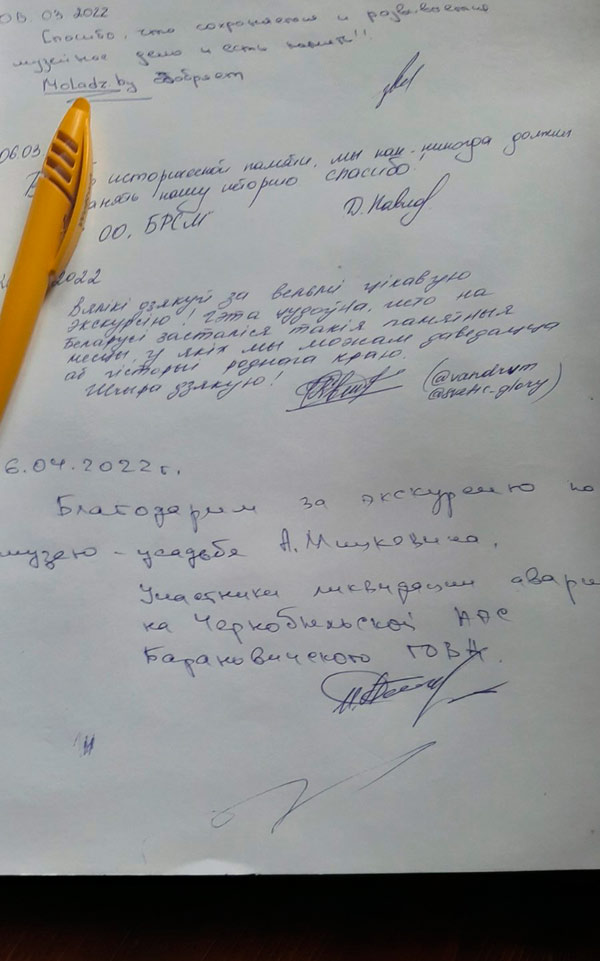 03.2022
Спасибо, что сохраняется и развивается
музейное дело и есть память!!
Moladz.by
06.03
исторической памяти, мы как никогда должны
нашу историю. Спасибо!
ОО "БРСМ" Д. Павлов
2022
Вялікі дзякуй за вельмі цікавую
экскурсію! Гэта цудоўна, што на
Беларусі засталіся такія памятныя
месцы, у якіх мы можам даведацца
аб гісторыі роднага краю.
Шчыра дзякую! (@vandrum
@static_glory)
6.04.2022 г.
Благодарим за экскурсию по
музею-усадьбе А. Мицкевича.
Участники ликвидации авари
на Чернобыльской АЭС
Барановичского ГОВД.